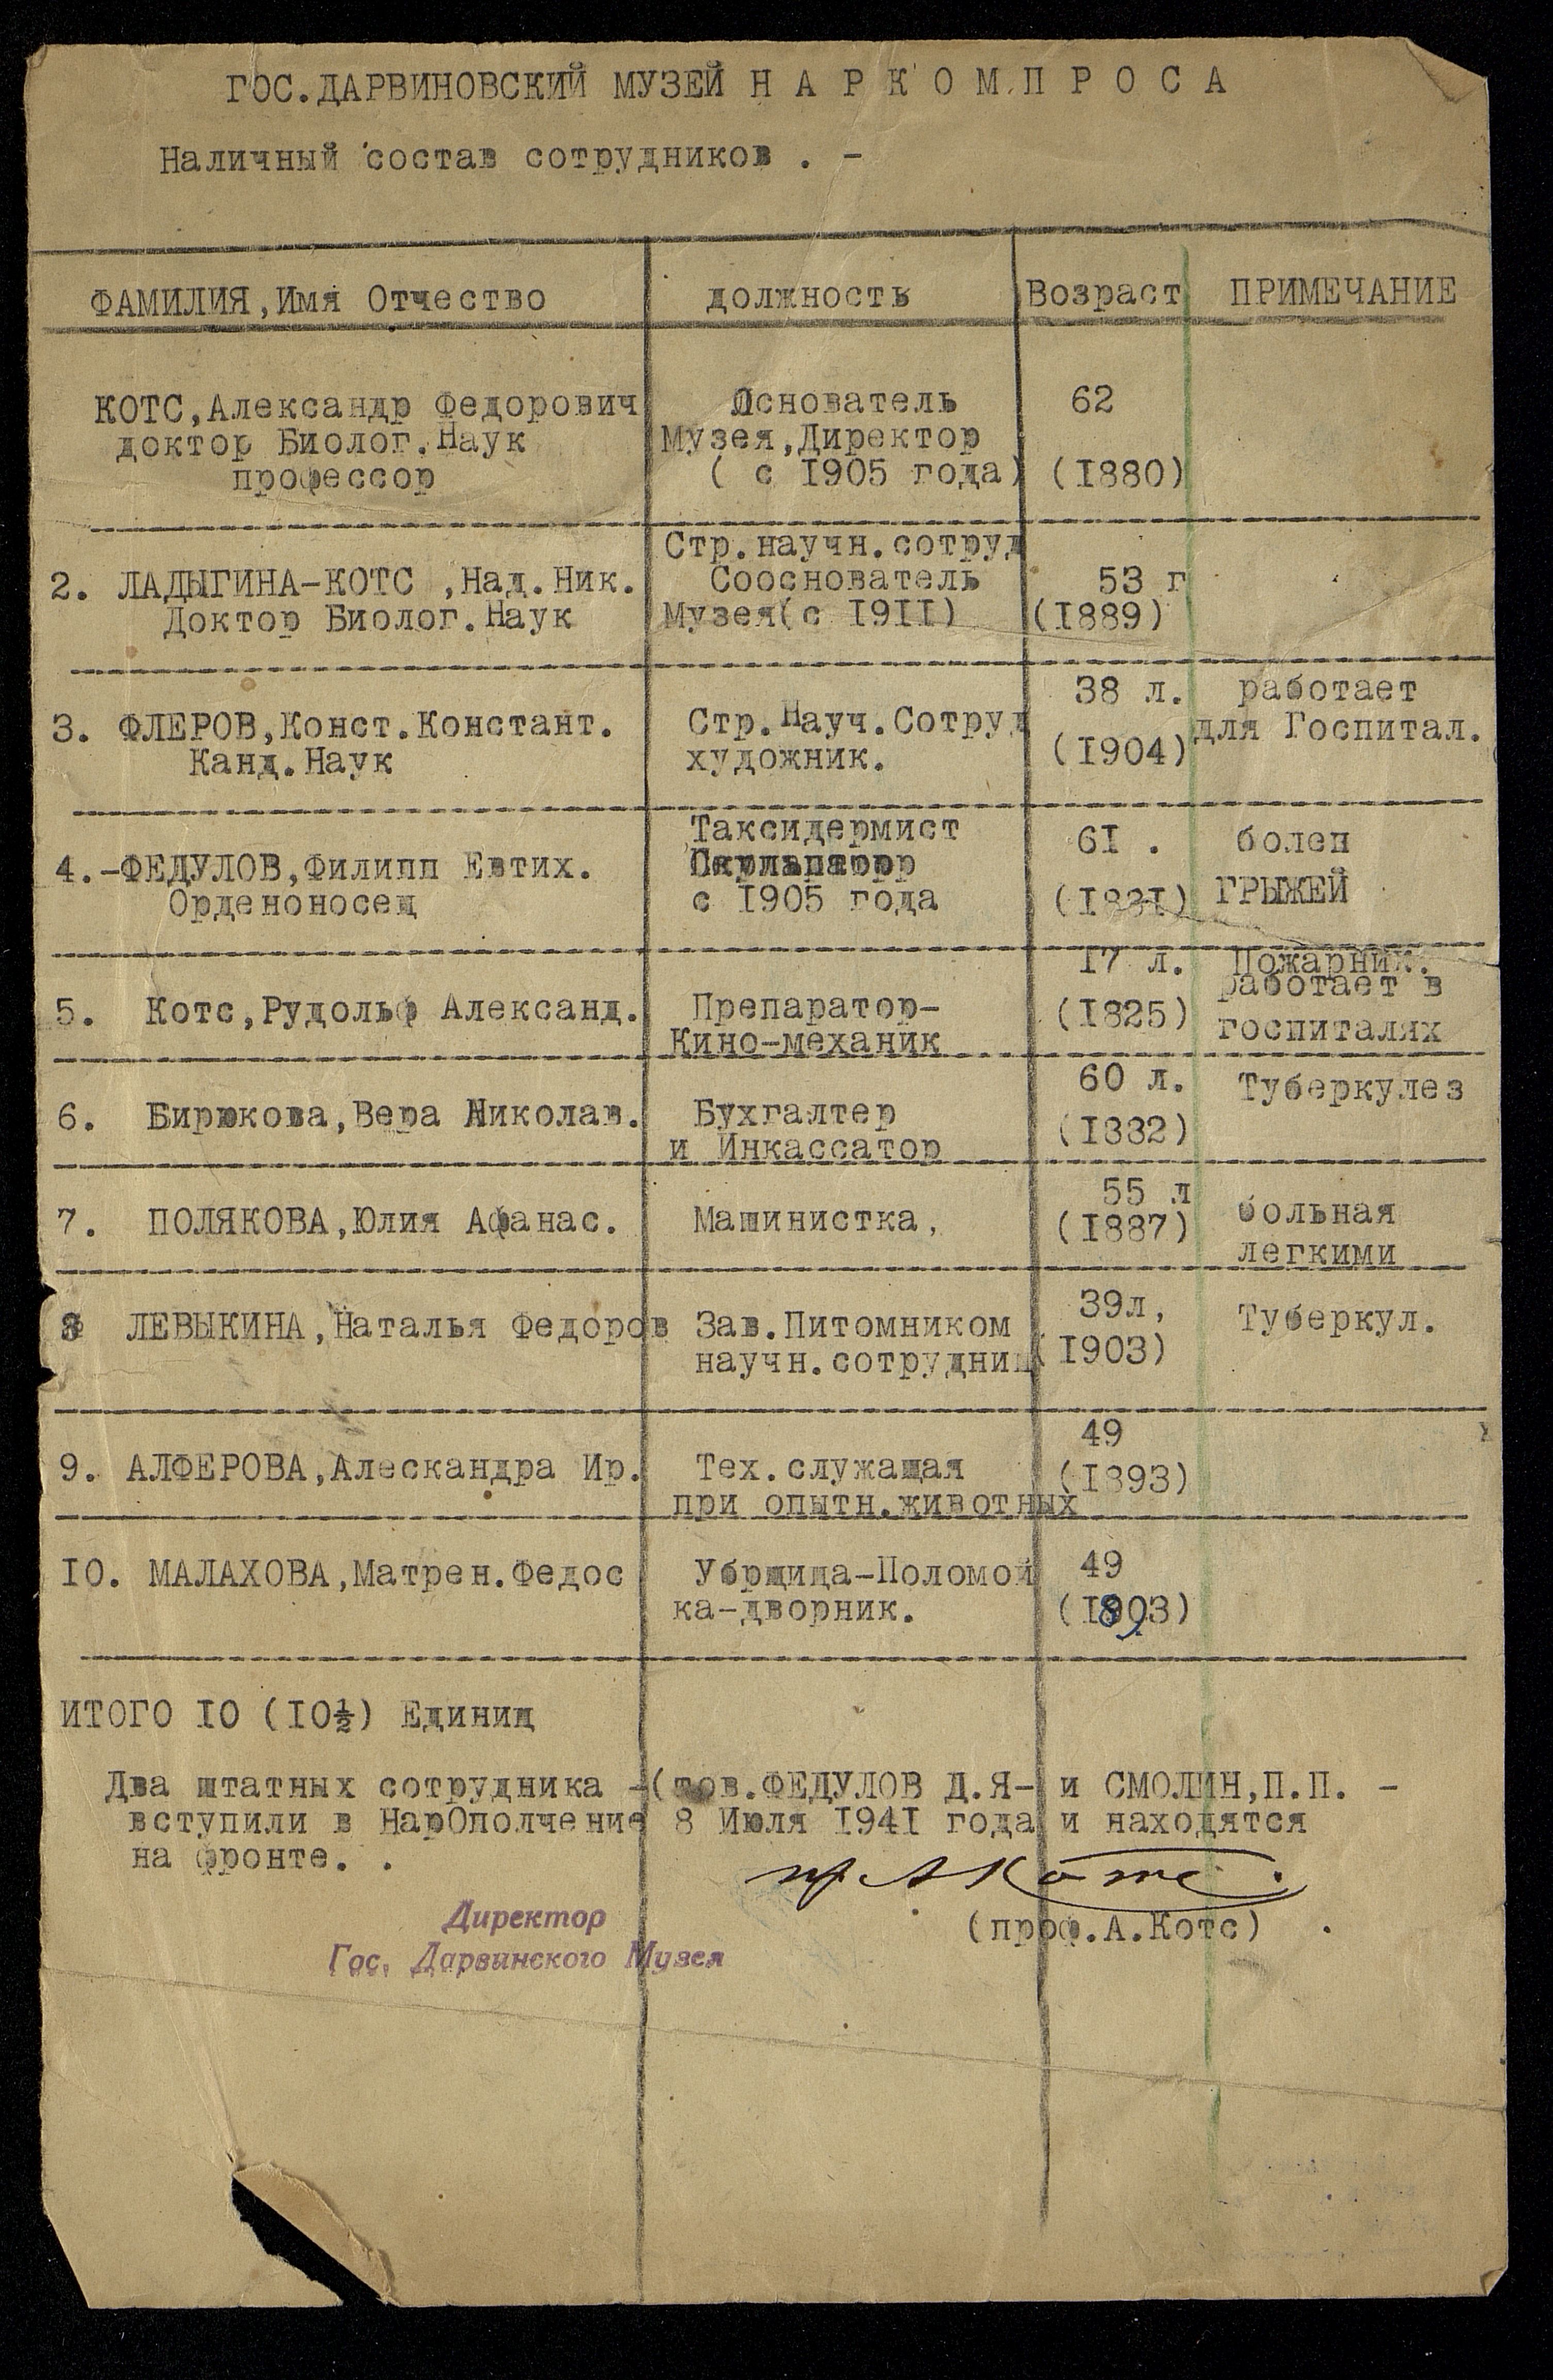 ГОС.ДАРВИНОВСКИЙ МУЗЕЙ Н А Р К О М П Р О С А
Наличный состав сотрудников . -
ФАМИЛИЯ,Имя Отчество должность Возраст ПРИМЕЧАНИЕ
КОТС,Александр Федорович Основатель 62
доктор Биолог.Наук Музея,Директор
профессор ( с 1905 года) (1880)
Стр.научн.сотруд
2. ЛАДЫГИНА-КОТС ,Над.Ник. Сооснователь 53 г
Доктор Биолог.Наук Музея(с 1911) (1889)
38 л. работает
3. ФЛЕРОВ,Конст.Констант. Стр.Науч.Сотруд для Госпитал.
Канд.Наук художник. (1904)
Таксидермист 61 . болен
4.-ФЕДУЛОВ,Филипп Евтих.
Орденоносец с 1905 года (1881) ГРЫЖЕЙ
17 л. Пожарник.
работает в
5. Котс,Рудольф Александ. Препаратор- (1825) госпиталях
Кино-механик
60 л. Туберкулез
6. Бирюкова,Вера Николав. Бухгалтер (1882)
и Инкассатор
55 л
7. ПОЛЯКОВА,Юлия Афанас. Машинистка, (1887) больная
легкими
39л,
8 ЛЕВЫКИНА,Наталья Федоров Зав.Питомником Туберкул.
научн.сотрудниц (1903)
49
9. АЛФЕРОВА,Алескандра Ир. Тех.служащая (1893)
при опытн.животных
10. МАЛАХОВА,Матрен.Федос Убрщица-Поломой 49
ка-дворник. (1893)
ИТОГО 10 (10½) Единиц
Два штатных сотрудника -(тов.ФЕДУЛОВ Д.Я- и СМОЛИН,П.П. -
вступили в НарОполчение 8 Июля 1941 года и находятся
на фронте. .
пр. А Котс.
Директор (проф.А.Котс) .
Гос. Дарвинского Музея